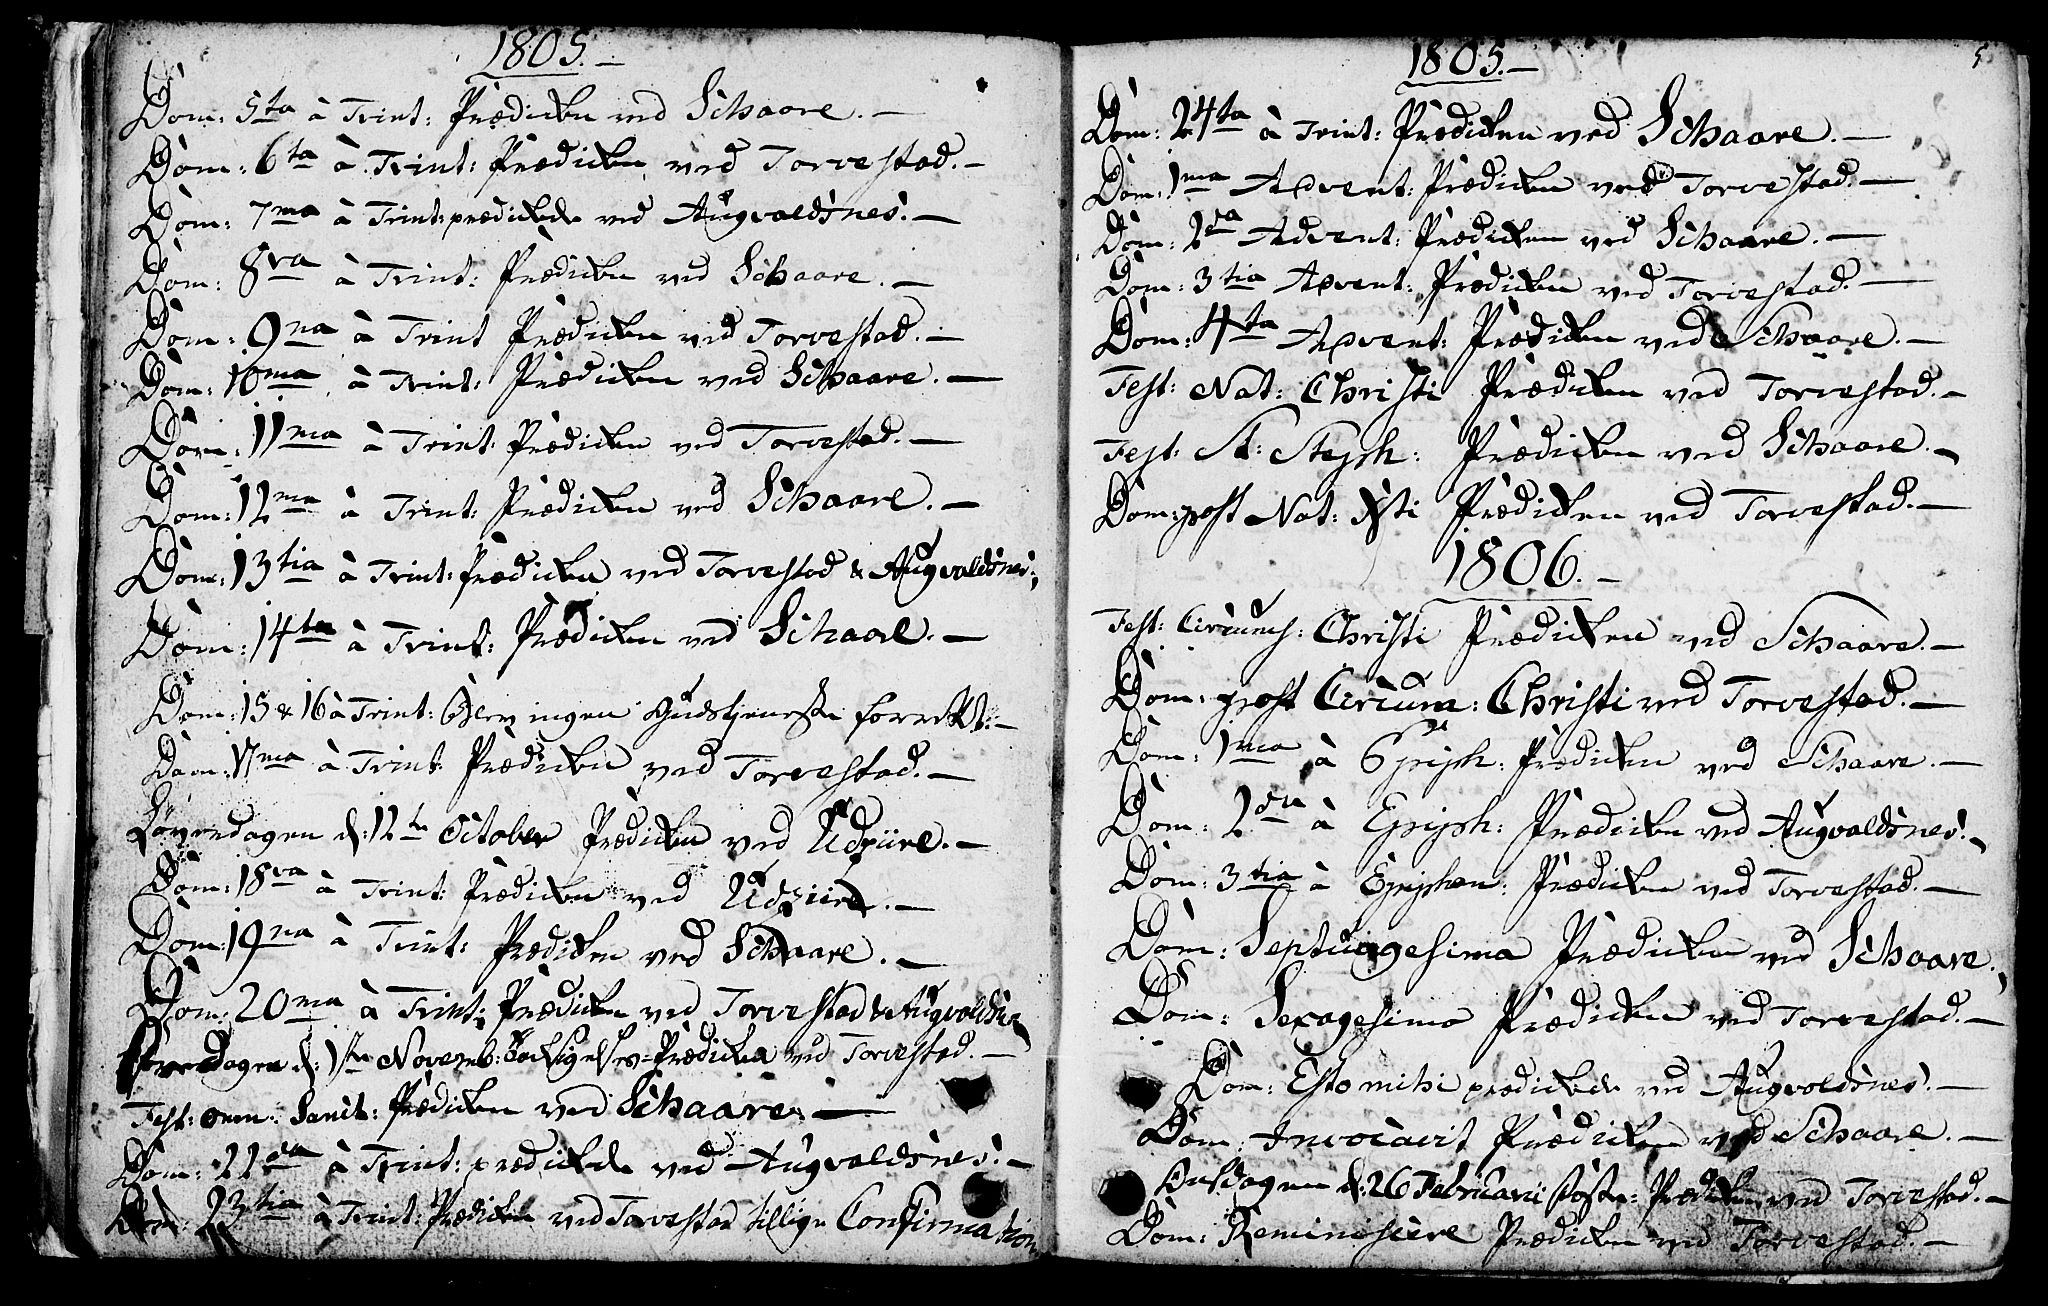 1805.—
Dom: 5ta à Trint: Prædicken ved Schaare.—
Dom: 6ta à Trint: Prædicken ved Torvestad.—
Dom: 7ma à Trint: prædickede ved Augvaldsnes.—
Dom: 8va à Trint: Prædicken ved Schaare.—
Dom: 9na à Trint Prædicken ved Torvestad.—
Dom: 10ma à Trint: Prædicken ved Schaare.—
Dom: 11ma à Trint: Prædicken ved Torvestad.—
Dom: 12ma à Trint: Prædicken ved Schaare.—
Dom: 13tia à Trint: Prædicken ved Torvestad & Augvaldsnes.
Dom: 14ta à Trint: Prædicken ved Schaare.—
Dom: 15 & 16 à Trint: blev ingen Gudstjeneste forrettet.—
Dom: 17ma à Trint: Prædicken ved Torvestad.—
Løverdagen d: 12te October Prædicken ved Udziire.—
Dom: 18va à Trint: Prædicken ved Udziire.—
Dom: 19na à Trint: Prædicken ved Schaare.—
Dom: 20ma à Trint: Prædicken ved Torvestad & Augvaldsnes
Fredagen d: 1ste Novemb: Tacksigelses-Prædicken ved Torvestad.—
Fest: omn: Sanct: Prædicken ved Schaare.—
Dom: 22da à Trint: prædickede ved Augvaldsnes.—
Dom: 23tia à Trint: Prædicken ved Torvestad tillige Confirmation
5
1805.—
Dom: 24ta à Trint: Prædicken ved Schaare.—
Dom: 1ma Advent: Prædicken ved Torvestad.—
Dom: 2da Advent: Prædicken ved Schaare.—
Dom: 3tia Advent: Prædicken ved Torvestad.—
Dom: 4ta Advent: Prædicken ved Schaare.—
Fest: Nat: Christi Prædicken ved Torvestad.—
Fest: St: Steph: Prædicken ved Schaare.—
Dom: post Nat: Xsti Prædicken ved Torvestad.—
1806.—
Fest: Circumcs: Christi Prædicken ved Schaare.—
Dom: post Circum: Christi ved Torvestad.—
Dom: 1ma à Epiph: Prædicken ved Schaare.—
Dom: 2da à Epiph: Prædicken ved Augvaldsnes.—
Dom: 3tia à Epiphan: Prædicken ved Torvestad.—
Dom: Septuagesima Prædicken ved Schaare.
Dom: Sexagesima Prædicken ved Torvestad.—
Dom: Esto mihi prædickede ved Augvaldsnes.—
Dom: Invocavit Prædicken ved Schaare.—
Onsdagen d: 26 Februarii Faste: Prædicken ved Torvestad.—
Dom: Reminiscere Prædicken ved Torvestad.—